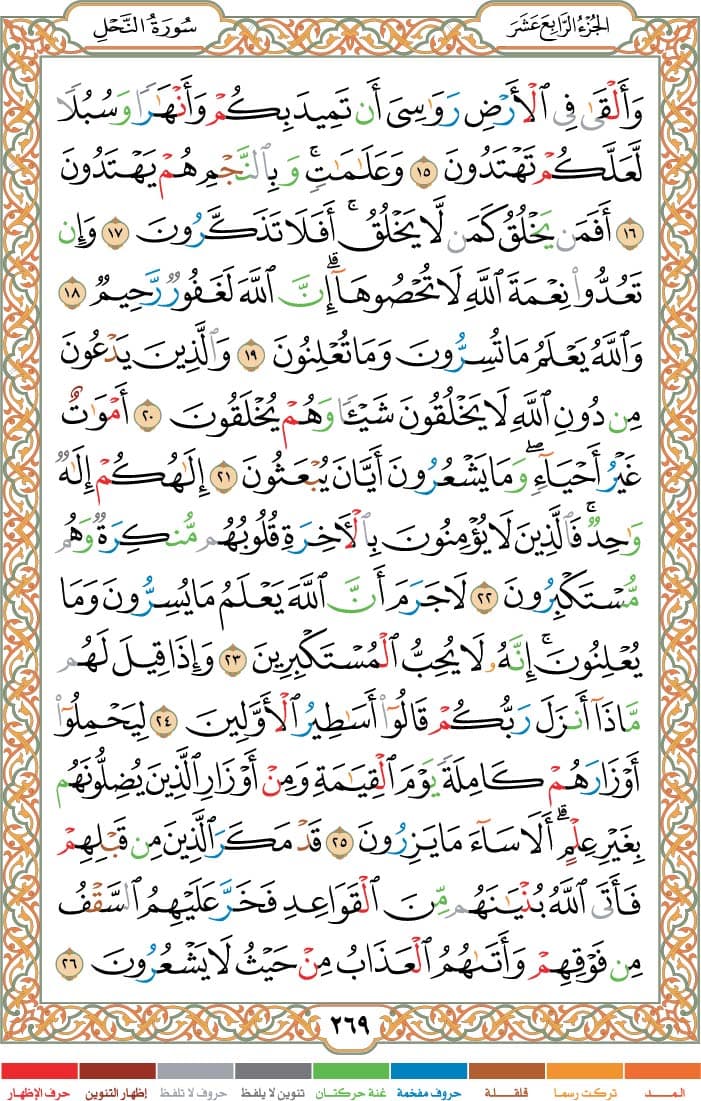 الجُزْءُ الرَّابِعَ عَشَرَ
سُورَةُ النَّحْلِ
وَأَلْقَىٰ فِي ٱلْأَرْضِ رَوَٰسِيَ أَن تَمِيدَ بِكُمْ وَأَنْهَٰرًا وَسُبُلًا
لَّعَلَّكُمْ تَهْتَدُونَ ١٥ وَعَلَٰمَٰتٍۚ وَبِٱلنَّجْمِ هُمْ يَهْتَدُونَ
١٦ أَفَمَن يَخْلُقُ كَمَن لَّا يَخْلُقُۚ أَفَلَا تَذَكَّرُونَ ١٧ وَإِن
تَعُدُّوا۟ نِعْمَةَ ٱللَّهِ لَا تُحْصُوهَآۗ إِنَّ ٱللَّهَ لَغَفُورٌ رَّحِيمٌ ١٨
وَٱللَّهُ يَعْلَمُ مَا تُسِرُّونَ وَمَا تُعْلِنُونَ ١٩ وَٱلَّذِينَ يَدْعُونَ
مِن دُونِ ٱللَّهِ لَا يَخْلُقُونَ شَيْـًٔا وَهُمْ يُخْلَقُونَ ٢٠ أَمْوَٰتٌ
غَيْرُ أَحْيَآءٍۖ وَمَا يَشْعُرُونَ أَيَّانَ يُبْعَثُونَ ٢١ إِلَٰهُكُمْ إِلَٰهٌ
وَٰحِدٌۚ فَٱلَّذِينَ لَا يُؤْمِنُونَ بِٱلْأَخِرَةِ قُلُوبُهُم مُّنكِرَةٌ وَهُم
مُّسْتَكْبِرُونَ ٢٢ لَا جَرَمَ أَنَّ ٱللَّهَ يَعْلَمُ مَا يُسِرُّونَ وَمَا
يُعْلِنُونَۚ إِنَّهُۥ لَا يُحِبُّ ٱلْمُسْتَكْبِرِينَ ٢٣ وَإِذَا قِيلَ لَهُم
مَّاذَآ أَنزَلَ رَبُّكُمْ قَالُوٓا۟ أَسَٰطِيرُ ٱلْأَوَّلِينَ ٢٤ لِيَحْمِلُوٓا۟
أَوْزَارَهُمْ كَامِلَةً يَوْمَ ٱلْقِيَٰمَةِ وَمِنْ أَوْزَارِ ٱلَّذِينَ يُضِلُّونَهُم
بِغَيْرِ عِلْمٍۗ أَلَا سَآءَ مَا يَزِرُونَ ٢٥ قَدْ مَكَرَ ٱلَّذِينَ مِن قَبْلِهِمْ
فَأَتَى ٱللَّهُ بُنْيَٰنَهُم مِّنَ ٱلْقَوَاعِدِ فَخَرَّ عَلَيْهِمُ ٱلسَّقْفُ
مِن فَوْقِهِمْ وَأَتَىٰهُمُ ٱلْعَذَابُ مِنْ حَيْثُ لَا يَشْعُرُونَ ٢٦
٢٦٩
المــد تركت رسما قلقلة حروف مفخمة غنة حركتان تنوين لا يلفظ حروف لا تلفظ إظهار التنوين حرف الإظهار